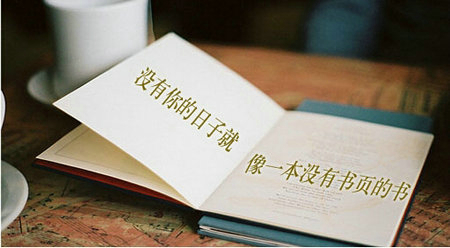 没有你的日子就
像一本没有书页的书